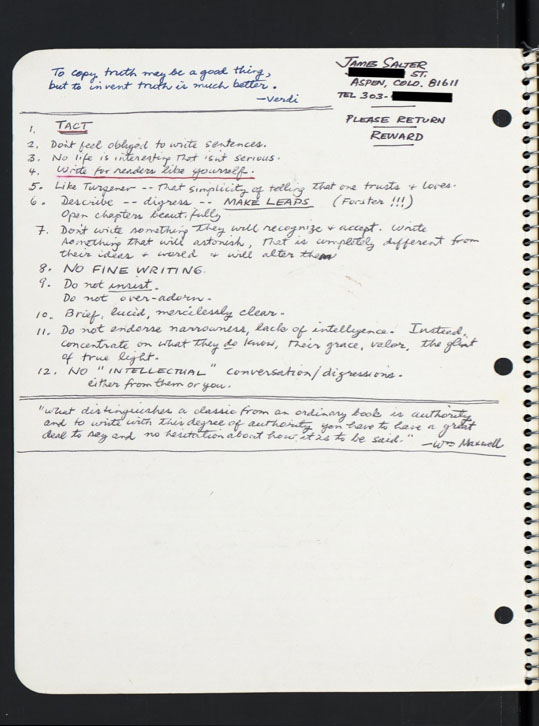 To copy truth may be a good thing,
but to invent truth is much better.
—Verdi
JAMES SALTER
ST.
ASPEN, COLO. 81611
TEL 303-
PLEASE RETURN
REWARD
1. TACT
2. Don't feel obliged to write sentences.
3. No life is interesting that isn't serious.
4. Write for readers like yourself.
5. Like Turgenev -- that simplicity of telling that one trusts + loves.
6. Describe -- digress -- MAKE LEAPS (Forster !!!)
Open chapters beautifully
7. Don't write something they will recognize + accept. Write
something that will astonish, that is completely different from
their ideas + world + will alter them
8. NO FINE WRITING.
9. Do not insist.
Do not over-adorn.
10. Brief, lucid, mercilessly clear.
11. Do not endorse narrowness, lack of intelligence. Instead,
concentrate on what they do know, their grace, valor, the glint
of true light.
12. NO "INTELLECTUAL" conversation/digressions.
either from them or you.
"What distinguishes a classic from an ordinary book is authority
and to write with this degree of authority you have to have a great
deal to say and no hesitation about how it is to be said." —Wm Maxwell